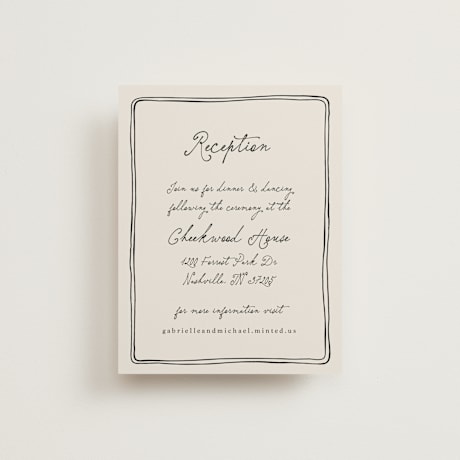 Reception
Join us for dinner & dancing
following the ceremony at the
Cheekwood House
1200 Forrest Park Dr
Nashville, TN 37205
for more information visit
gabrielleandmichael.minted.us